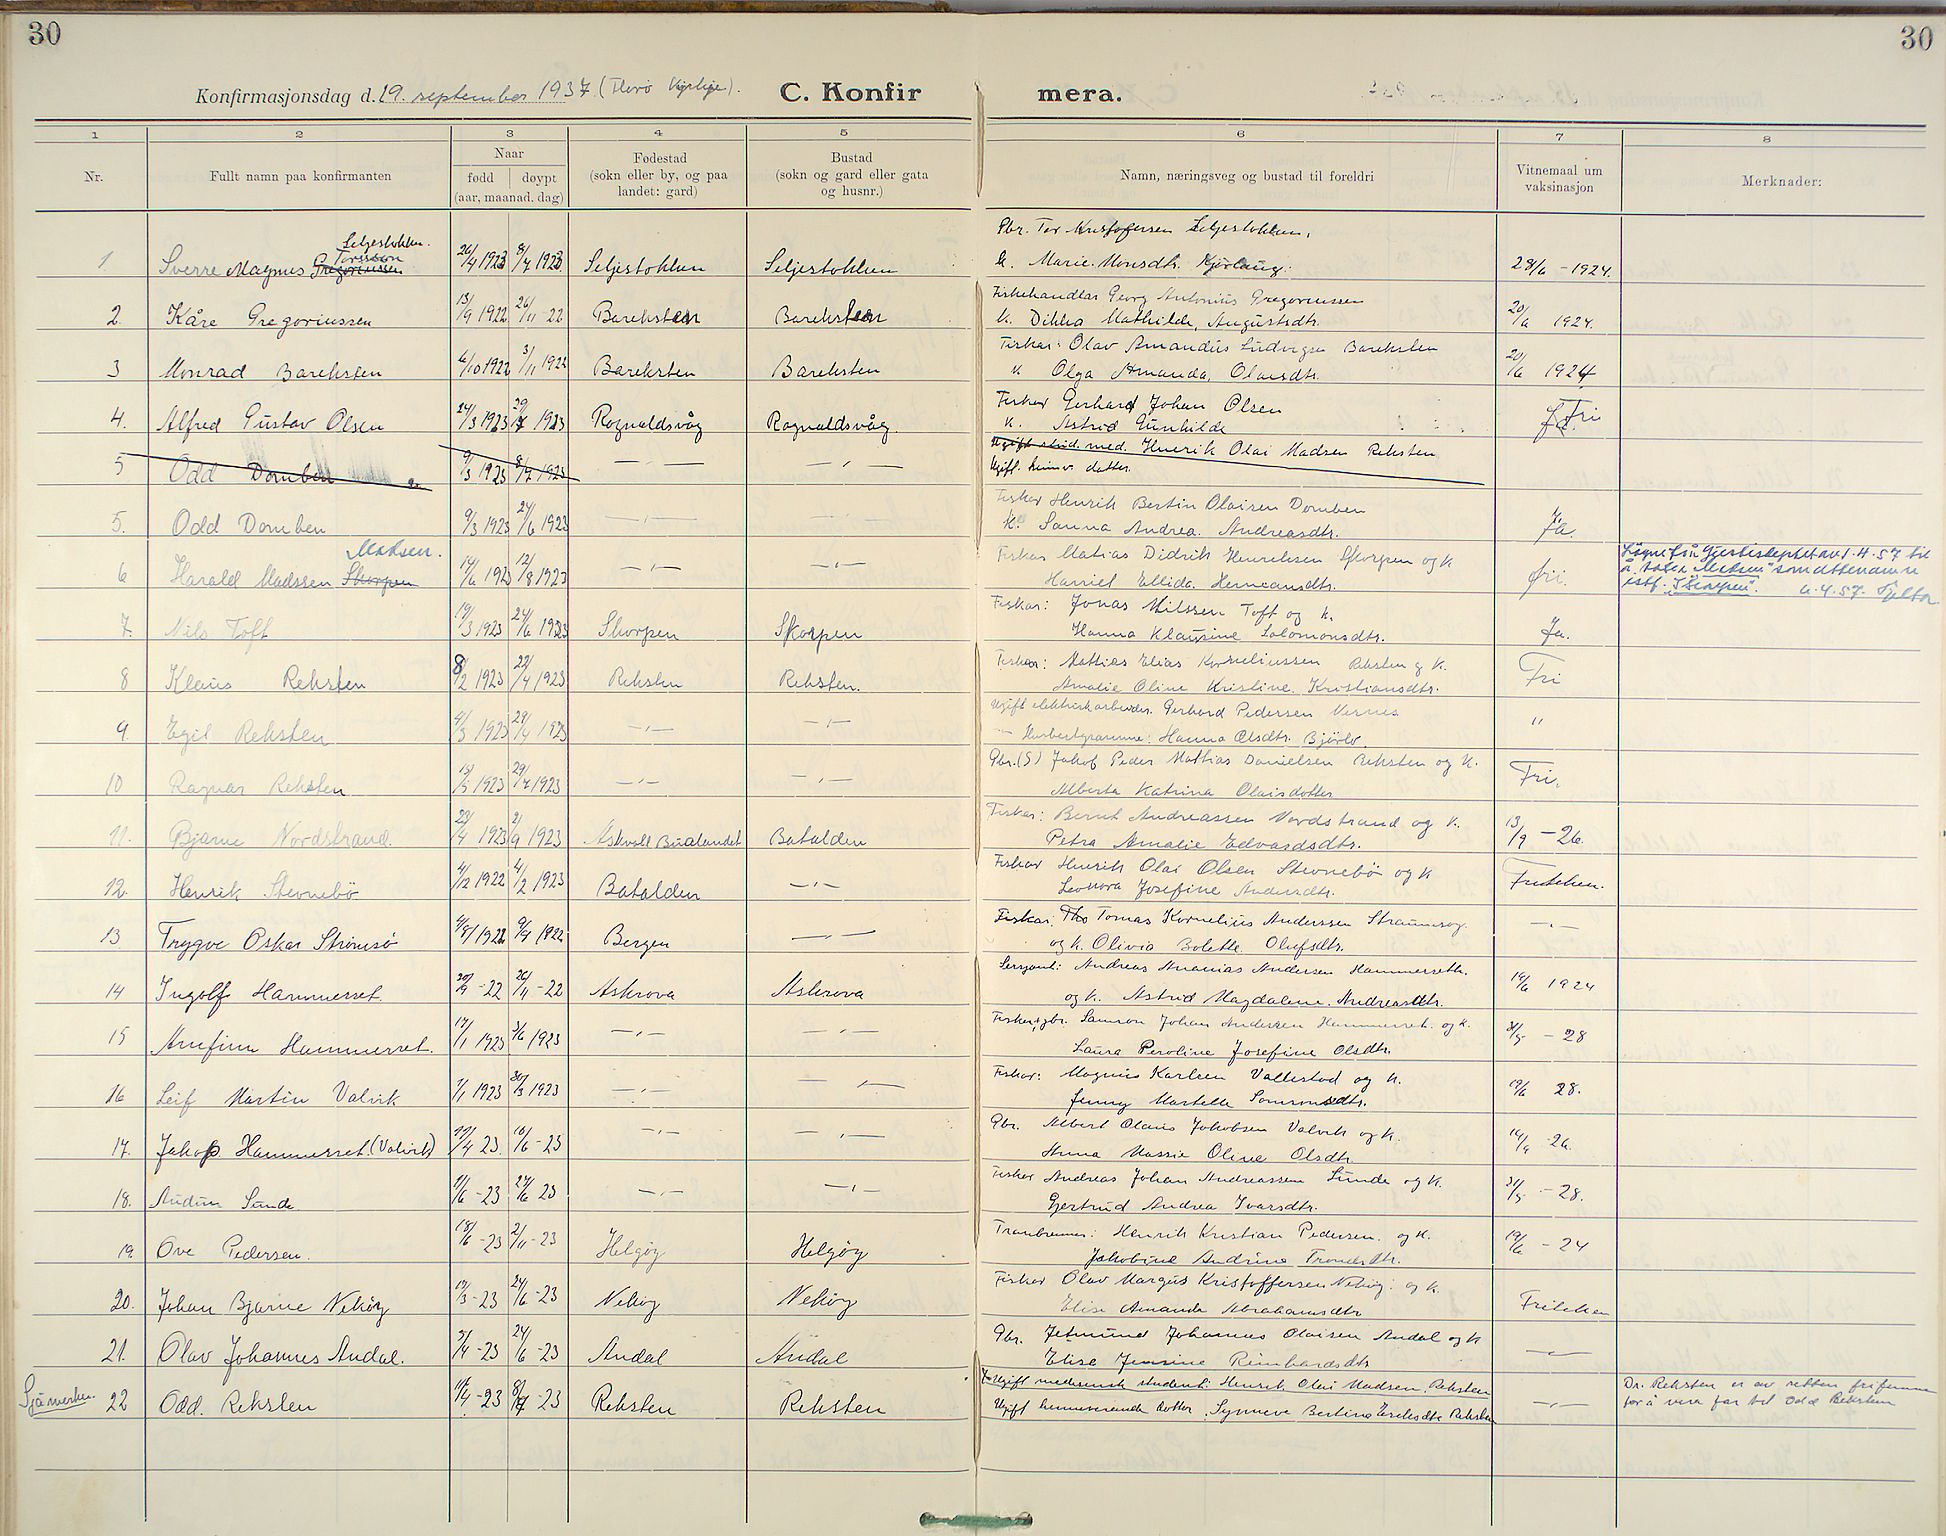 30
30
Konfirmasjonsdag d. 19. september 1937 (Florø kyrkje).
C. Konfir mera.
1 2 3 4 5 6 7 8
Nr.
Fullt namn paa konfirmanten
Naar
fødd døypt
(aar, maanad. dag)
Fødestad
(sokn eller by, og paa
landet: gard)
Bustad
(sokn og gard eller gata
og husnr.)
Namn, næringsveg og bustad til foreldri
Vitnemaal um
vaksinasjon
Merknader:
Seljestokken.
1 Sverre Magnus Gregoriussen 26/4 1923 8/7 1923 Seljestokken Seljestokken
Gbr. Tor Kristofersen Seljestokken,
k. Marie Monsdtr. 28/6 - 1924.
2. Kåre Gregoriussen 13/9 1922 26/11 22 Bareksten Bareksten
Fiskehandlar Georg Antonius Gregoriussen
k. Dikka Mathilde, Augustsdtr. 20/6 1924.
3 Monrad Bareksten 6/10 1922 3/11 1922 Bareksten Bareksten
Fiskar: Olav Amandus Ludvigsen Bareksten
k Olga Amanda, Olaisdtr. 20/6 1924
4. Alfred Gustav Olsen 24/3 1923 1923 Rognaldsvåg Rognaldsvåg.
Fiskar Gerhard Johan Olsen
k. Astrid Gunhilde Fri
5 Odd Domben 9/3 1923 8/7 1923 — " — — " —
Ugift stud. med. Henrik Olai Madsen Reksten
Ugift. heimv. dotter.
5. Odd Domben 9/3 1923 24/6 1923 — " — — " —
Fiskar Henrik Bertin Olaisen Domben
k. Sanna Andrea Andreasdtr. Ja.
Madsen.
6 Harald Madssen Skorpen 14/6 1923 12/8 1923 — " — — " —
Fiskar Matias Didrik Henriksen Skorpen og k
Harriet Ellida Hermansdtr. fri.
"Madsen" som ettenamn
istf. "Skorpen". 6.4.57.
7. Nils Toft 19/3 1923 24/6 1923 Skorpen Skorpen
Fiskar: Jonas Nilssen Toft og k.
Hanna Klausine Salomonsdtr. Ja.
8 Klaus Reksten 8/2 1923 22/4 1923 Reksten Reksten.
Fiskar: Mattias Elias Korneliussen Reksten og k.
Amalie Oline Kristine Kristiansdtr. Fri
9. Egil Reksten 4/3 1923 29/4 1923 — " — — " —
Ugift elektriskarbeider. Gerhard Pedersen Vernes
Hanna Olsdtr. "
10 Ragnar Reksten 1923 29/4 1923 — " — — " —
Gbr. (S) Jakob Peder Mattias Danielsen Reksten og k.
Alberta Katrina Olaisdotter Fri.
11. Bjarne Nordstrand 23/4 1923 2/9 1923 Askvoll Bulandet Batalden
Fiskar: Bernt Andreassen Nordstrand og k.
Petra Amalie Edvardsdtr. 13/9 - 26.
12. Henrik Stevnebø 4/12 1922 4/2 1923 Batalden — " —
Fiskar Henrik Olai Olsen Stevnebø og k
Leonora Josefine Andersdtr.
13 Trygve Oskar Strømsø 1922 1922 Bergen — " —
Fiskar: Tomas Kornelius Anderssen
og k. Olivia Bolette Olufsdtr. — " —
14 Ingolf Hammerset 20/9 - 22 26/11 - 22 Askrova Askrova
Sersjant: Andreas Ananias Andersen Hammerseth.
og k. Astrid Magdalene. Andreasdtr. 19/6 1924
15 Arnfinn Hammerset. 17/1 1923 3/6 1923 — " — — " —
Fisker, gbr. Samson Johan Andersen Hammerset. og k.
Laura Peroline Josefine Olsdtr. 31/5 - 28
16 Leif Martin Valvik 7/1 1923 30/3 1923 — " — — " —
Fiskar: Magnus Karleen Vallestad og k.
Jenny Martelle Samsonsdtr. 19/6 28.
17. Jakop Hammerset (Valvik) 27/4 23. 10/6 - 23 — " — — " —
Gbr. Albert Olaus Jakobsen Valvik og k.
Anna Massie Oline Olsdtr 14/9 26.
18. Audun Sunde 11/6 - 23 29/6 23 — " — — " —
Fisker Andreas Johan Andreassen Sunde og k.
Gjertrud Andrea Ivarsdtr. 31/5 - 28.
19. Ove Pedersen. 18/6 - 23 2/11 - 23 Helgøy Helgøy
Tranbrenner: Henrik Kristian Pedersen. og k.
Jakobine Andrine Trondsdtr. 19/6 - 24
20. Johan Bjarne Nekøy 19/3 - 23 24/6 - 23 Nekøy Nekøy
Fisker Olav Margus Kristoffersen Nekøy: og k.
Elise Amanda Abrahamsdtr
21. Olav Johannes Andal. 5/4 - 23 24/6 - 23 Andal Andal
Gbr. Jetmund Johannes Olaisen Andal og k
Elise Jensine Reinhardsdtr — " —
22 Odd. Reksten 11/4 - 23 8/7 - 23 Reksten Reksten
Ugift medisinsk student: Henrik Olai Madsen. Reksten
Ugift heimeverande dotter. Synneve Bertine Reksten — " —
Dr. Reksten er av retten frifunnen
for å vera far til Odd Reksten